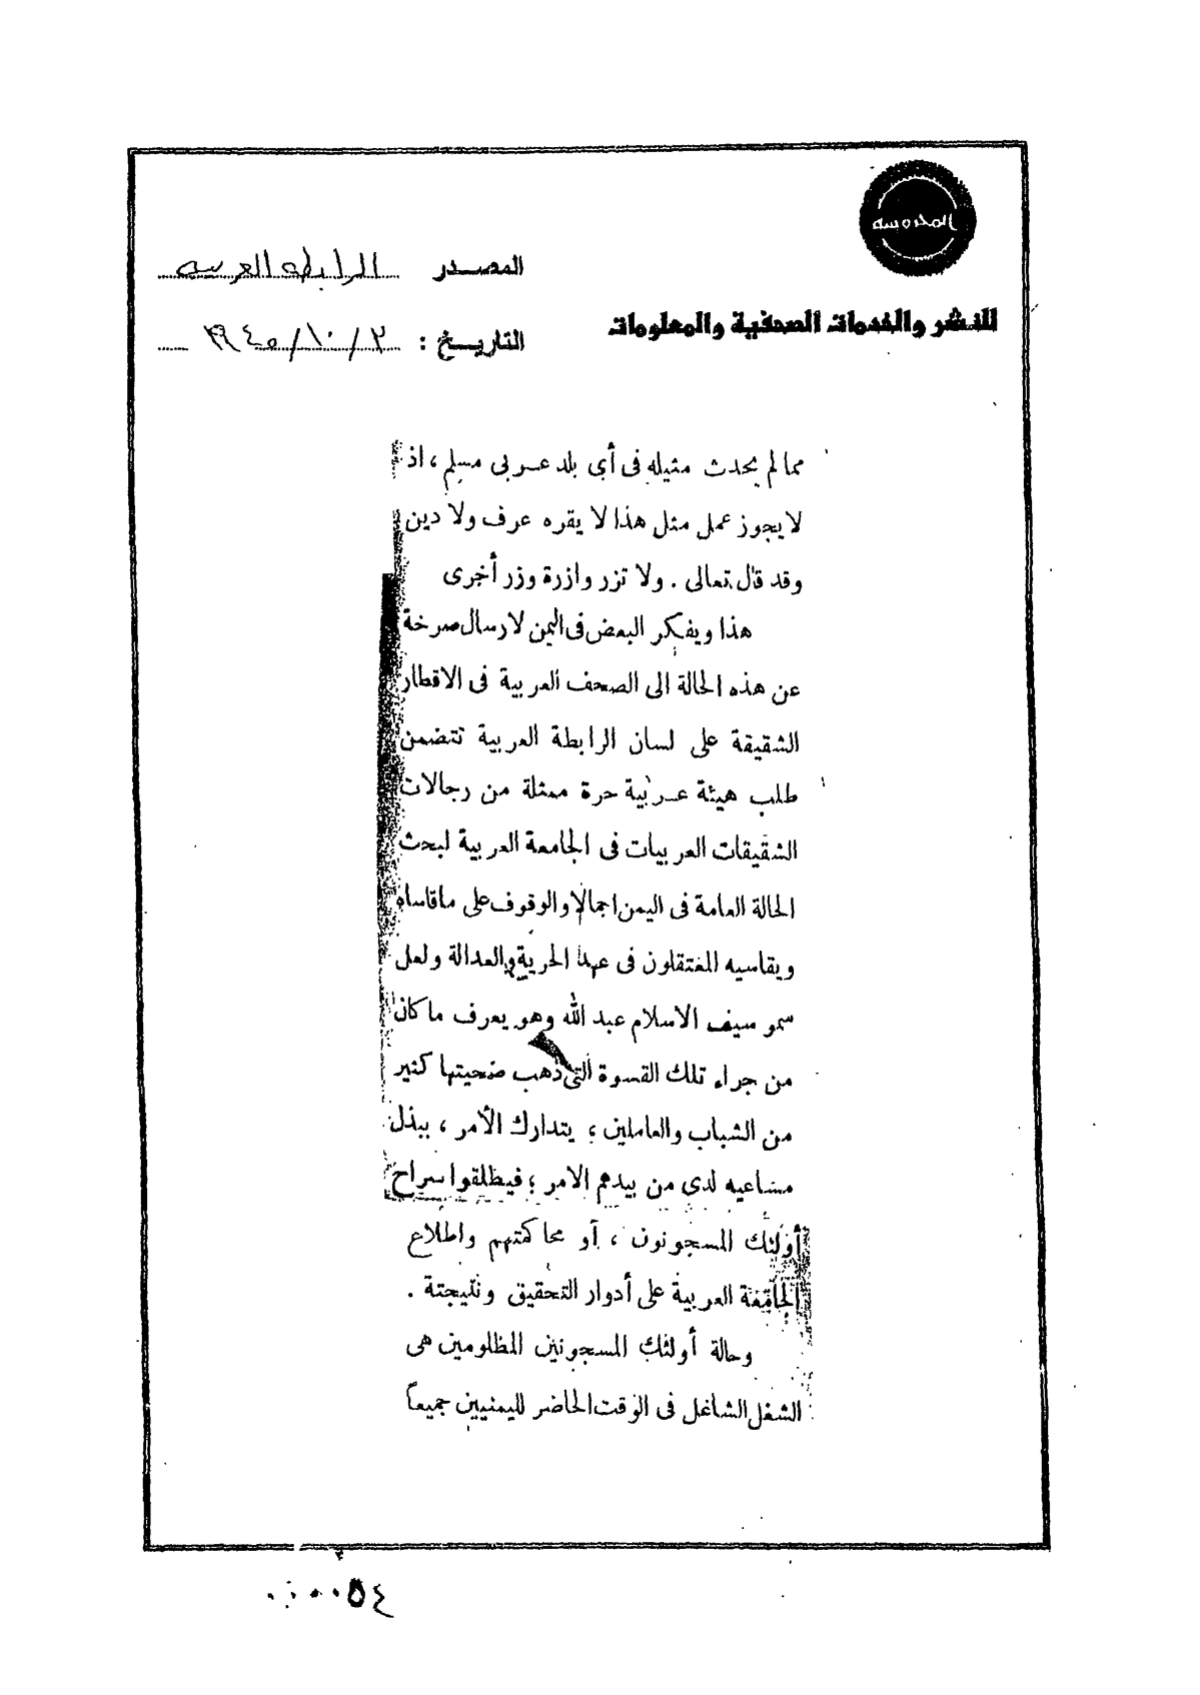 المحروسة
للنشر والخدمات الصحفية والمعلومات
المصدر الرابطه العربيه
التاريخ : ٢ / ١٠ / ١٩٤٥
مما لم يحدث مثيله فى أى بلد عربى مسلم ، اذ
لا يجوز عمل مثل هذا لا يقره عرف ولا دين
وقد قال تعالى . ولا تزر وازرة وزر أخرى
هذا ويفكر البعض فى اليمن لارسال صرخة
عن هذه الحالة الى الصحف العربية فى الاقطار
الشقيقة على لسان الرابطة العربية تتضمن
طلب هيئة عربية حرة ممثلة من رجالات
الشقيقات العربيات فى الجامعة العربية لبحث
الحالة العامة فى اليمن اجمالا والوقوف على ماقاساه
ويقاسيه المعتقلون فى عهد الحرية والعدالة ولعل
سمو سيف الاسلام عبد الله وهو يعرف ما كان
من جراء تلك القسوة التى ذهب ضحيتها كثير
من الشباب والعاملين ؛ يتدارك الأمر ، ببذل
مساعيه لدى من بيدهم الامر ؛ فيطلقوا سراح
أولئك المسجونون ، أو محاكمتهم واطلاع
الجامعة العربية على أدوار التحقيق ونتيجتة .
وحالة أولئك المسجونين المظلومين هى
الشغل الشاغل فى الوقت الحاضر لليمنيين جميعاً
٠٠٠٠٥٤